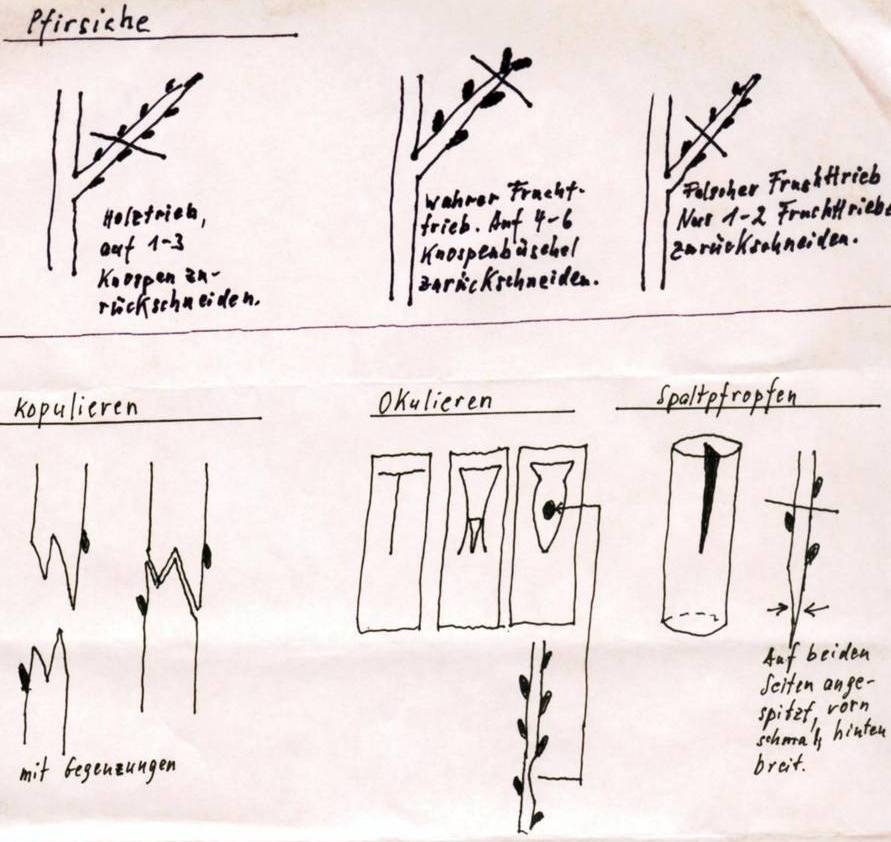 Pfirsiche
Holztrieb,
auf 1-3
Knospen zu-
rückschneiden.
Wahrer Frucht-
trieb. Auf 4-6
Knospenbüschel
zurückschneiden.
Falscher Fruchttrieb
Nur 1-2 Fruchttriebe
zurückschneiden.
Kopulieren
Okulieren
Spaltpfropfen
mit Gegenzungen
Auf beiden
Seiten ange-
spitzt, vorn
schmal, hinten
breit.